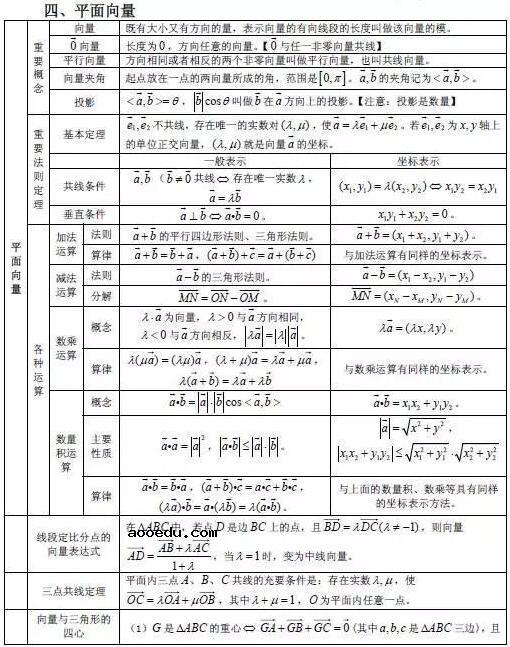 四、平面向量
平面向量
重要概念
向量 既有大小又有方向的量，表示向量的有向线段的长度叫做该向量的模。
0⃗向量 长度为 0，方向任意的向量。【0⃗ 与任一非零向量共线】
平行向量 方向相同或者相反的两个非零向量叫做平行向量，也叫共线向量。
向量夹角 起点放在一点的两向量所成的角，范围是[0,π]。a⃗,b⃗的夹角记为<a⃗,b⃗>。
投影 <a⃗,b⃗>=θ，|b⃗|cosθ叫做b⃗在a⃗方向上的投影。【注意：投影是数量】
重要法则定理
基本定理 e⃗₁,e⃗₂不共线，存在唯一的实数对(λ,μ)，使a⃗=λe⃗₁+μe⃗₂。若e⃗₁,e⃗₂为x,y轴上
的单位正交向量，(λ,μ)就是向量a⃗的坐标。
一般表示 坐标表示
共线条件 a⃗,b⃗（b⃗≠0⃗共线⇔存在唯一实数λ， (x₁,y₁)=λ(x₂,y₂)⇔x₁y₂=x₂y₁
a⃗=λb⃗
垂直条件 a⃗⊥b⃗⇔a⃗•b⃗=0。 x₁y₁+x₂y₂=0。
各种运算
加法运算
法则 a⃗+b⃗的平行四边形法则、三角形法则。 a⃗+b⃗=(x₁+x₂,y₁+y₂)。
算律 a⃗+b⃗=b⃗+a⃗，(a⃗+b⃗)+c⃗=a⃗+(b⃗+c⃗) 与加法运算有同样的坐标表示。
减法运算
法则 a⃗−b⃗的三角形法则。 a⃗−b⃗=(x₁−x₂,y₁−y₂)
分解 MN⃗=ON⃗−OM⃗。 MN⃗=(x_N−x_M,y_N−y_M)。
数乘运算
概念 λ·a⃗为向量，λ>0与a⃗方向相同， λa⃗=(λx,λy)。
λ<0与a⃗方向相反，|λa⃗|=|λ||a⃗|。
算律 λ(μa⃗)=(λμ)a⃗，(λ+μ)a⃗=λa⃗+μa⃗， 与数乘运算有同样的坐标表示。
λ(a⃗+b⃗)=λa⃗+λb⃗
数量积运算
概念 a⃗•b⃗=|a⃗|·|b⃗|cos<a⃗,b⃗> a⃗•b⃗=x₁x₂+y₁y₂。
主要性质 a⃗•a⃗=|a⃗|²，|a⃗•b⃗|≤|a⃗|·|b⃗|。 |a⃗|=√(x²+y²)，
|x₁x₂+y₁y₂|≤√(x₁²+y₁²)·√(x₂²+y₂²)
算律 a⃗•b⃗=b⃗•a⃗，(a⃗+b⃗)•c⃗=a⃗•c⃗+b⃗•c⃗， 与上面的数量积、数乘等具有同样
(λa⃗)•b⃗=a⃗•(λb⃗)=λ(a⃗•b⃗)。 的坐标表示方法。
线段定比分点的向量表达式
在ΔABC中，若点D是边BC上的点，且BD⃗=λDC⃗(λ≠−1)，则向量
aooedu.com
AD⃗=(AB⃗+λAC⃗)/(1+λ)，当λ=1时，变为中线向量。
三点共线定理
平面内三点A、B、C共线的充要条件是：存在实数λ,μ，使
OC⃗=λOA⃗+μOB⃗，其中λ+μ=1，O为平面内任意一点。
向量与三角形的四心
（1）G是ΔABC的重心⇔GA⃗+GB⃗+GC⃗=0⃗(其中a,b,c是ΔABC三边)，且